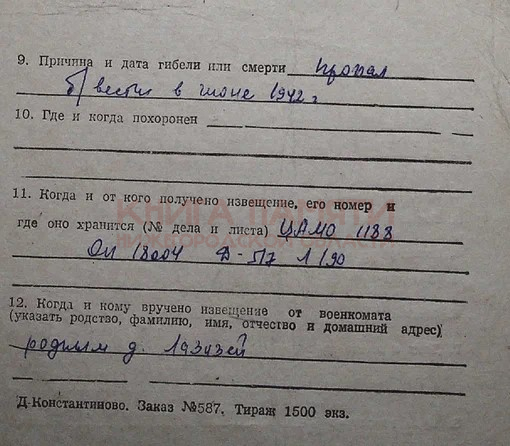 9. Причина и дата гибели или смерти пропал
б/вести в июне 1942 г
10. Где и когда похоронен
11. Когда и от кого получено извещение, его номер и
где оно хранится (№ дела и листа) ЦАМО 1188
ОП 18004 Д-517 Л 190
12. Когда и кому вручено извещение от военкомата
(указать родство, фамилию, имя, отчество и домашний адрес)
родным д.
Д-Константиново. Заказ №587. Тираж 1500 экз.
КНИГА ПАМЯТИ
НИЖЕГОРОДСКОЙ ОБЛАСТИ